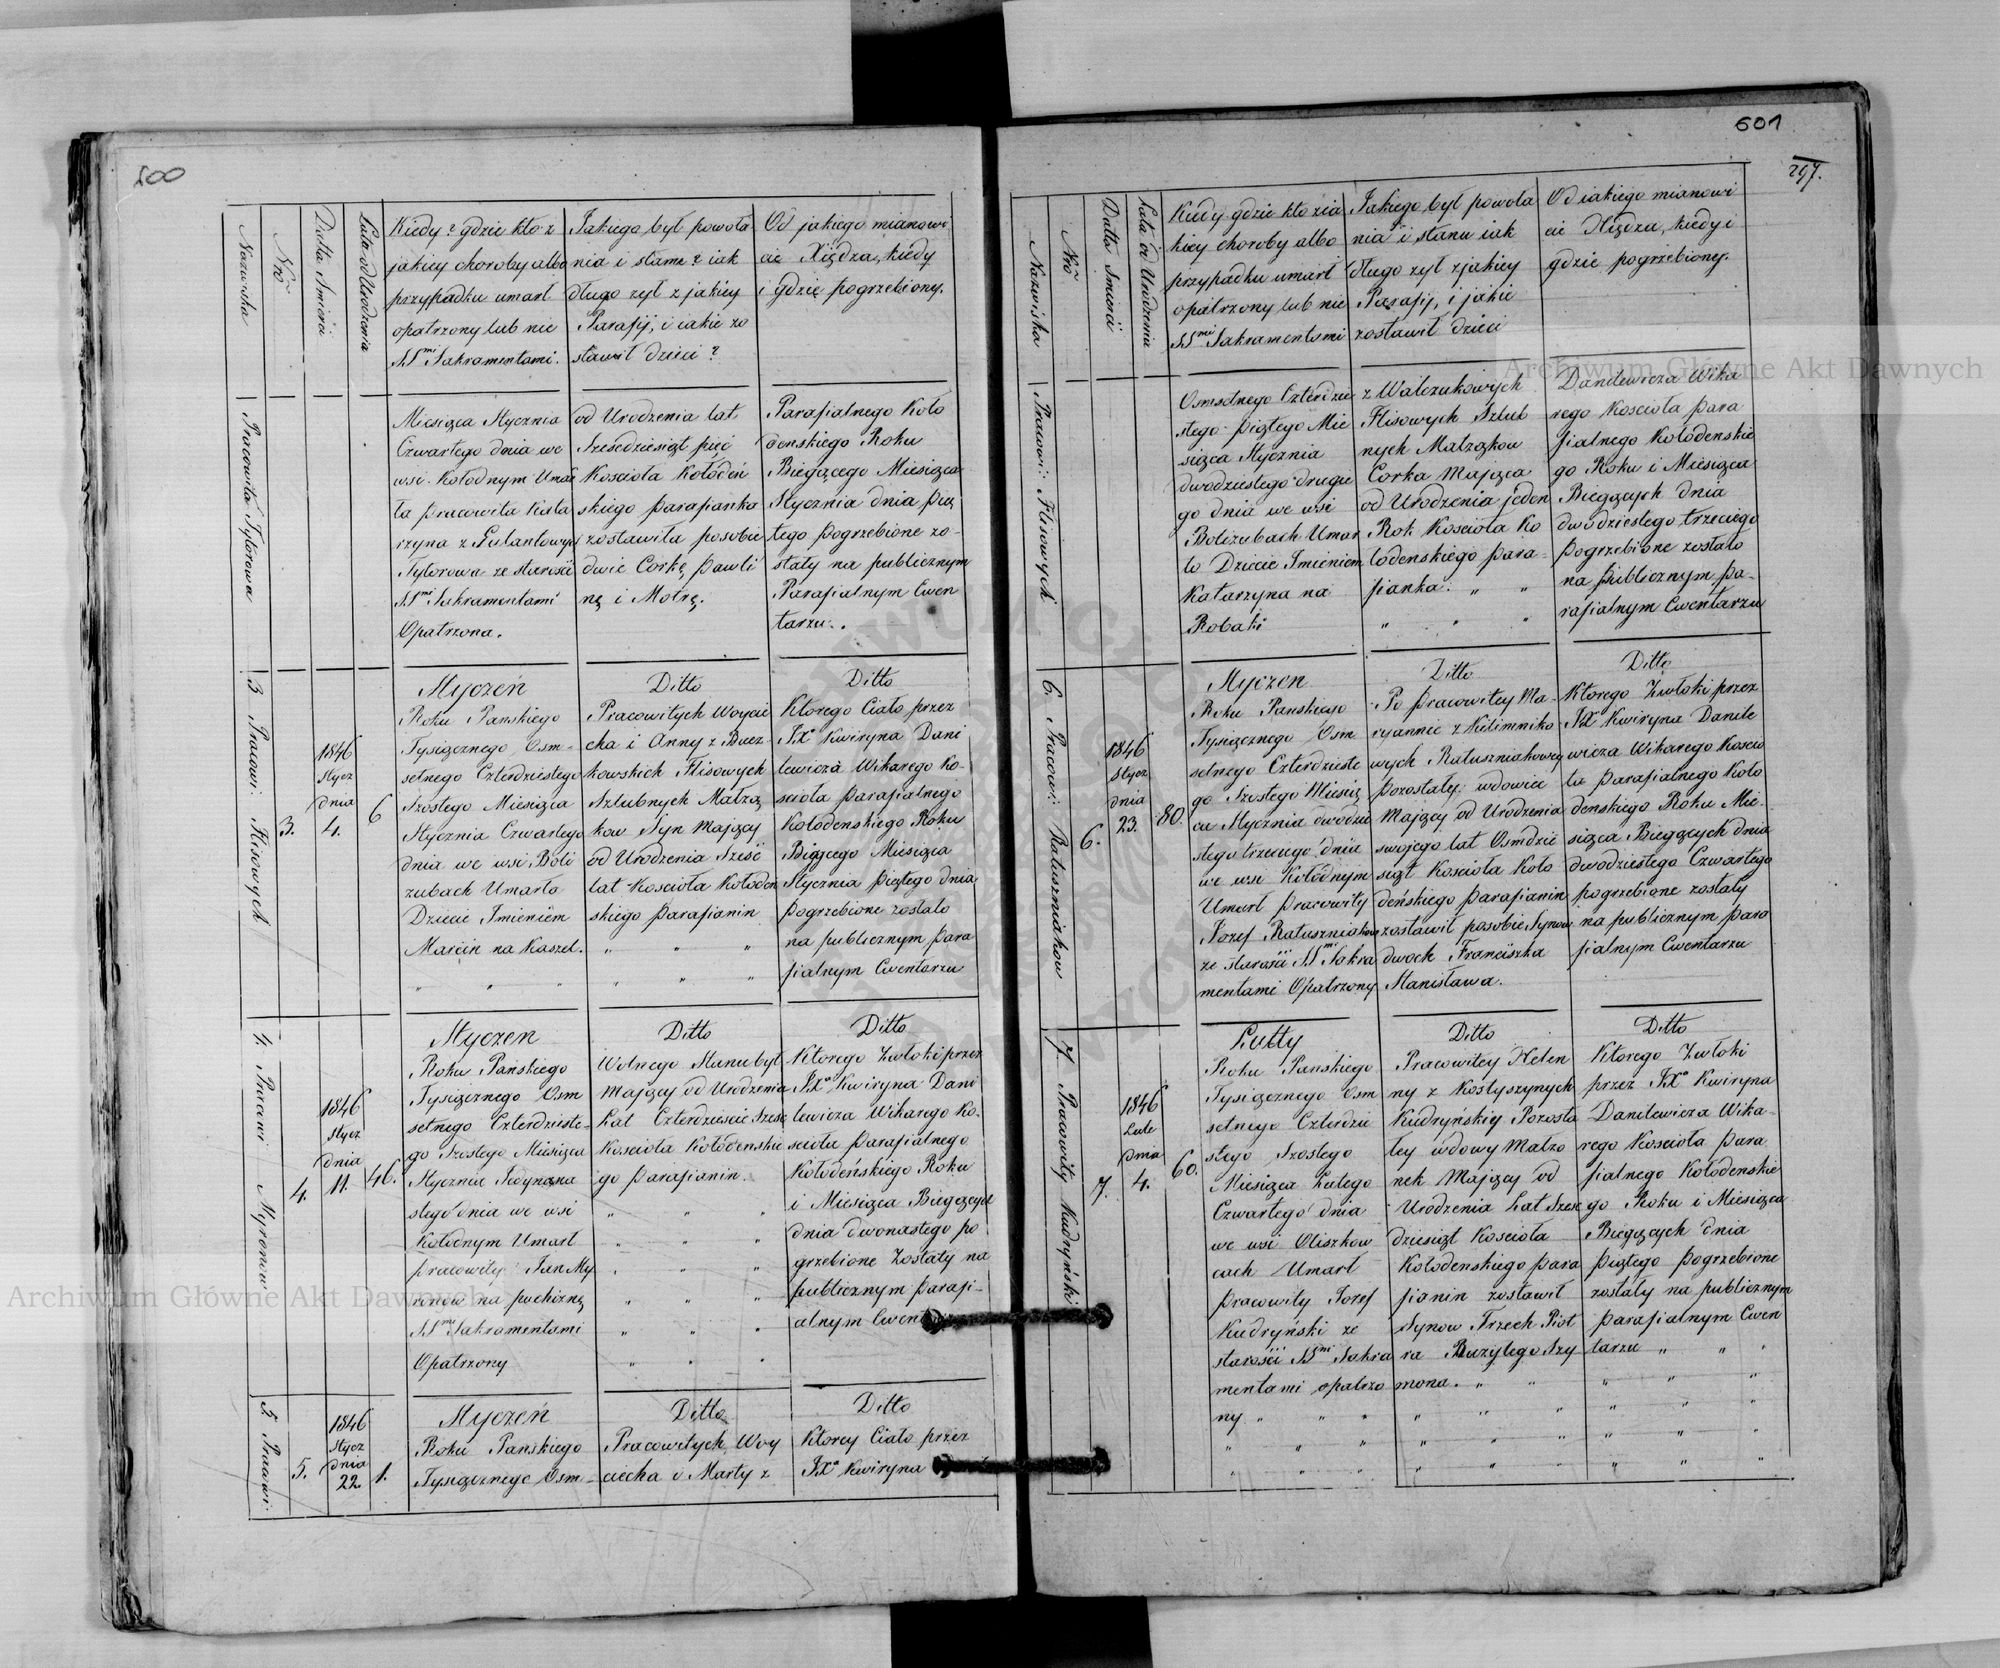 600
Nazwiska
Nrõ
Datta Smierci
Lata od Urodzenia
Kiedy? gdzie kto z
jakiey choroby albo
przypadku umarł
opatrzony lub nie
SS.mi Sakramentami.
Jakiego był powoła
nia i stanu? iak
długo zył z jakiey
Parafij, i iakie zo
stawił dzieci?
Od jakiego mianowi
cie Xiędza, kiedy
i gdzie pogrzebiony.
Pracowita Tytorowa
Miesiąca Stycznia
Czwartego dnia we
wsi Kołodnym Umar
ła pracowita Kata
rzyna z Gulantowych
Tytorowa ze starości
SS.mi Sakramentami
Opatrzona.
od Urodzenia lat
Sześdziesiąt pięć
Kościoła Kołodeń
skiego parafianka
zostawiła posobie
dwie Corkę Pawli
nę i Motrę.
Parafialnego Koło
denskiego Roku
Biegącego Miesiąca
Stycznia dnia pią
tego pogrzebione zo-
stały na publicznym
Parafialnym Cwen
tarzu.
3 Pracowi: Flisowych
3.
1846
Stycz
dnia
4.
6
Styczeń
Roku Panskiego
Tysiącznego Osm-
setnego Czterdziestego
Szostego Miesiąca
Stycznia Czwartego
dnia we wsi Boli
zubach Umarło
Dziecie Imieniem
Marcin na Kaszel.
Ditto
Pracowitych Woycie
cha i Anny z Bucz-
kowskich Flisowych
Szlubnych Małżą
kow Syn Mający
od Urodzenia Sześć
lat Kościoła Kołoden
skiego Parafianin
Ditto
Ktorego Ciało przez
JXa Kwiryna Dani
lewicza Wikarego Ko-
scioła parafialnego
Kołodenskiego Roku
Biącego Miesiąca
Stycznia piątego dnia
pogrzebione zostało
na publicznym para
fialnym Cwentarzu
4. Pracowi Myronowi
4.
1846
Stycz
dnia
11.
46.
Styczen
Roku Pańskiego
Tysiącznego Osm
setnego Czterdzieste-
go Szostego Miesiąca
Stycznia Jedynana
stego dnia we wsi
Kołodnym Umarł
pracowity Jan My
ronow na puchirnę
SS.mi Sakramentami
Opatrzony
Ditto
Wolnego Stanu był
Mający od Urodzenia
Lat Czterdzieście Szesc
Kościoła Kołodenskie
go parafianin
Ditto
Ktorego Zwłoki przez
JXa Kwiryna Dani
lewicza Wikarego Ko-
scioła parafialnego
Kołodeńskiego Roku
i Miesiąca Biegących
dnia dwonastego po
grzebione Zostały na
publicznym parafi-
alnym
5. Pracowi:
5.
1846
Stycz
dnia
22.
1.
Styczeń
Roku Panskiego
Tysiącznego Osm-
Ditto
Pracowitych Woy
ciecha i Marty z
Ditto
Ktorey Ciało przez
JXa Kwiryna
601
297.
Nazwiska
Nrõ
Datta Smierci
Lata od Urodzenia
Kiedy gdzie kto z ia
kiey choroby albo
przypadku umarł
opatrzony lub nie
SS.mi Sakramentami
Jakiego był powoła
nia i stanu iak
długo zył z jakiey
Parafij, i jakie
zostawił dzieci
Od iakiego mianowi
cie Xiędza, kiedy i
gdzie pogrzebiony.
Pracowi: Flisowych
Osmsetnego Czterdzie
stego piątego Mie
siąca Stycznia
dwodziestego drugie
go dnia we wsi
Bolizubach Umar
ło Dziecie Imieniem
Katarzyna na
Robaki
z Walczukowych
Flisowych Szlub
nych Małząkow
Corka Mająca
od Urodzenia jeden
Rok Kościoła Ko
łodenskiego para-
fianka.
Danilewicza Wika
rego Koscioła para
fialnego Kołodenskie
go Roku i Miesiąca
Biegących dnia
dwodziestego trzeciego
pogrzebione zostało
na publicznym pa-
rafialnym Cwentarzu
6. Pracowi Ratuszniakow
6.
1846
Stycz
dnia
23.
80.
Styczen
Roku Panskiego
Tysiącznego Osm
setnego Czterdzieste
go Szostego Miesią
ca Stycznia dwodzie
stego trzeciego dnia
we wsi Kołodnym
Umarł pracowity
Jozef Ratuszniakow
ze starości SS.mi Sakra
mentami Opatrzony
Ditto
Po pracowitey Ma-
ryannie z Kilimniko
wych Ratuszniakowey
pozostały wdowiec
Mający od Urodzenia
swojego lat Osmdzie
siąt Kościoła Koło
deńskiego parafianin
zostawił posobie Synow
dwoch Franciszka
Stanisława.
Ditto
Ktorego Zwłoki przez
JXa Kwiryna Danile
wicza Wikarego Koscio
ła parafialnego Koło
denskiego Roku Mie-
siąca Biegących dnia
dwodziestego Czwartego
pogrzebione zostały
na publicznym para
fialnym Cwentarzu
7. Pracowity Kudryński
7.
1846
Lute
dnia
4.
60.
Lutty
Roku Panskiego
Tysiącznego Osm
setnego Czterdzie
stego Szostego
Miesiąca Lutego
Czwartego dnia
we wsi Oliszkow
cach Umarł
pracowity Jozef
Kudryński ze
starości SS.mi Sakra
mentami opatrzo
ny
Ditto
Pracowitey Helen
ny z Kostyszynych
Kudryńskiey Pozosta
łey wdowy Małżo
nek Mający od
Urodzenia Lat Szesc
dziesiąt Kościoła
Kołodenskiego para
fianin zostawił
Synow Trzech Piot
ra Bazylego Szy
mona.
Ditto
Ktorego Zwłoki
przez JXa Kwiryna
Danilewicza Wika-
rego Koscioła para
fialnego Kołodenskie
go Roku i Miesiąca
Biegących dnia
piątego pogrzebione
zostały na publicznym
parafialnym Cwen
tarzu
Archiwum Główne Akt Dawnych
Archiwum Główne Akt Dawnych